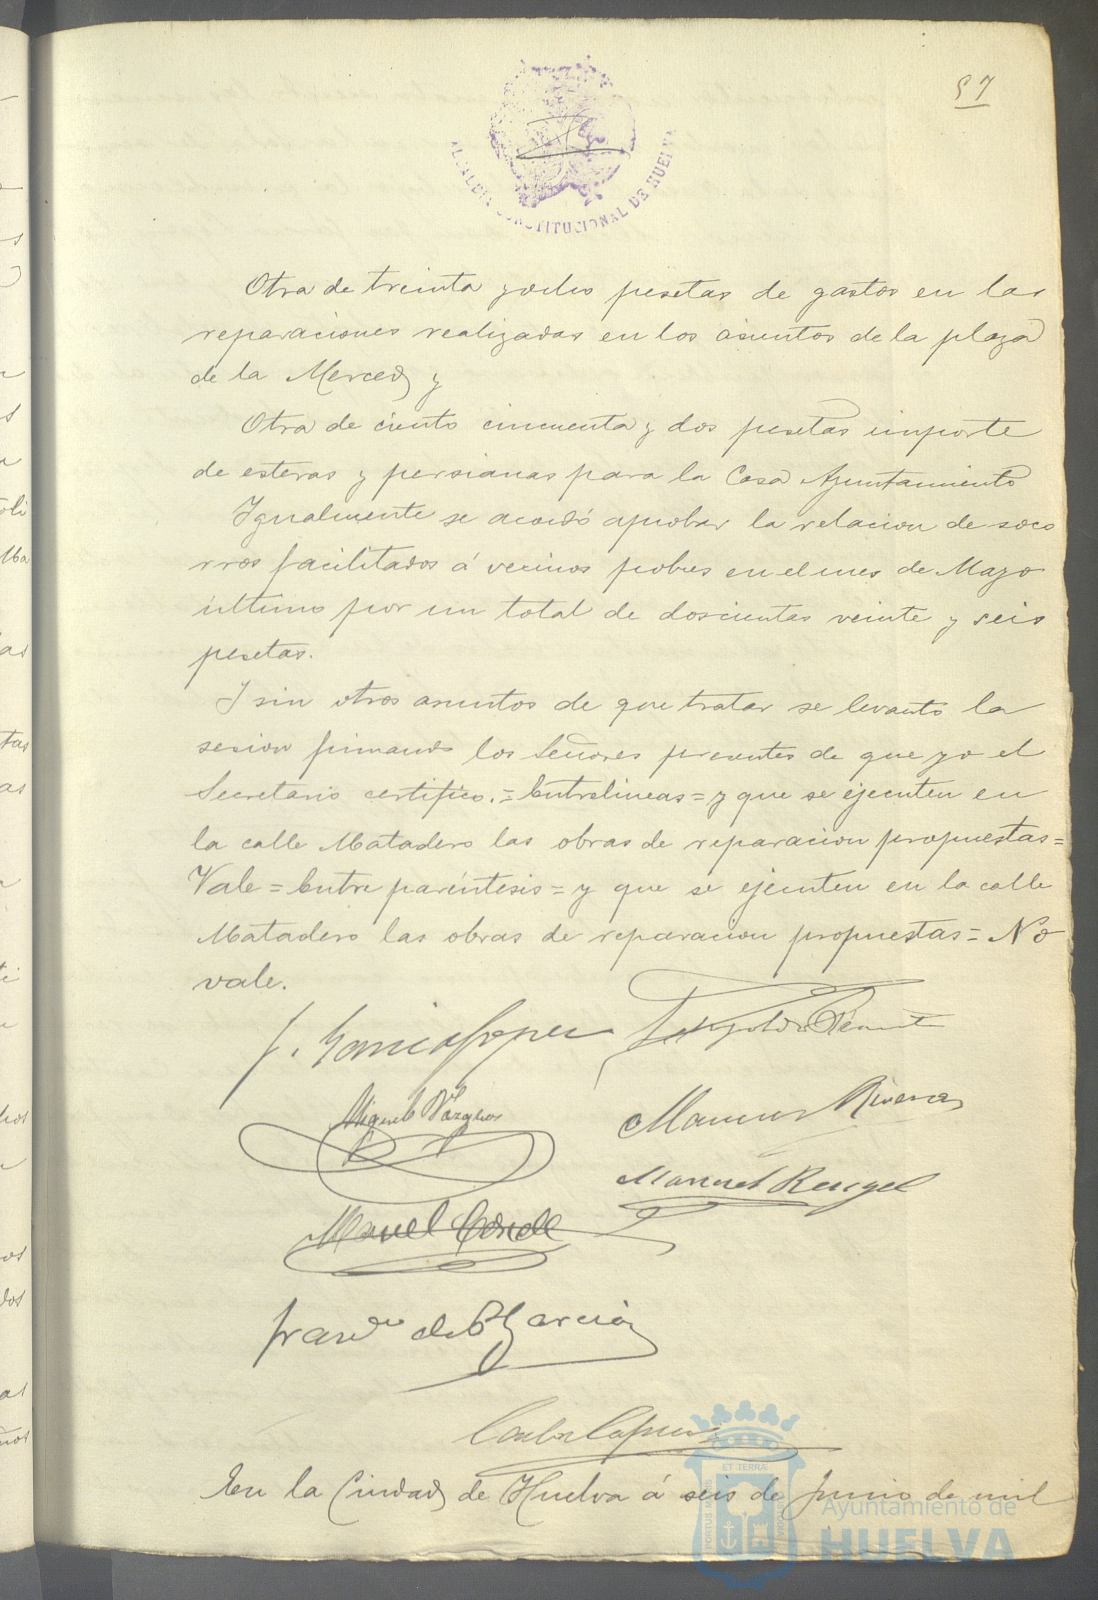 57
ALCALDIA CONSTITUCIONAL DE HUELVA
Otra de treinta y ocho pesetas de gastos en las
reparaciones realizadas en los asientos de la plaza
de la Merced y
Otra de ciento cincuenta y dos pesetas importe
de esteras y persianas para la Casa Ayuntamiento
Igualmente se acordó aprobar la relacion de soco
rros facilitados á vecinos pobres en el mes de Mayo
último por un total de doscientas veinte y seis
pesetas.
Y sin otros asuntos de que tratar se levanto la
sesion firmando los Señores presentes de que yo el
Secretario certifico.=Entrelineas=y que se ejecuten en
la calle Matadero las obras de reparacion propuestas=
Vale=Entre paréntesis=y que se ejecuten en la calle
Matadero las obras de reparacion propuestas=No
vale.
J. Garcia Lopez
Miguel Vazquez
Manuel Rivera
Manuel Rengel
Manuel Conde
Garcia
En la Ciudad de Huelva á seis de Junio de mil
ET TERRÆ
PORTUS MARIS
Ayuntamiento de
HUELVA